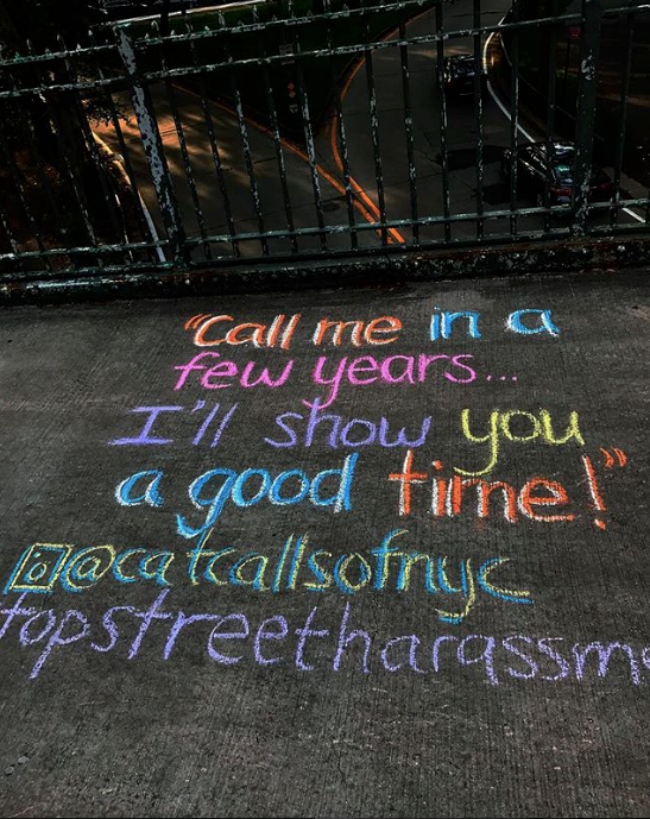 "Call me in a
few years...
I'll show you
a good time!"
@catcallsofnyc
topstreetharassme